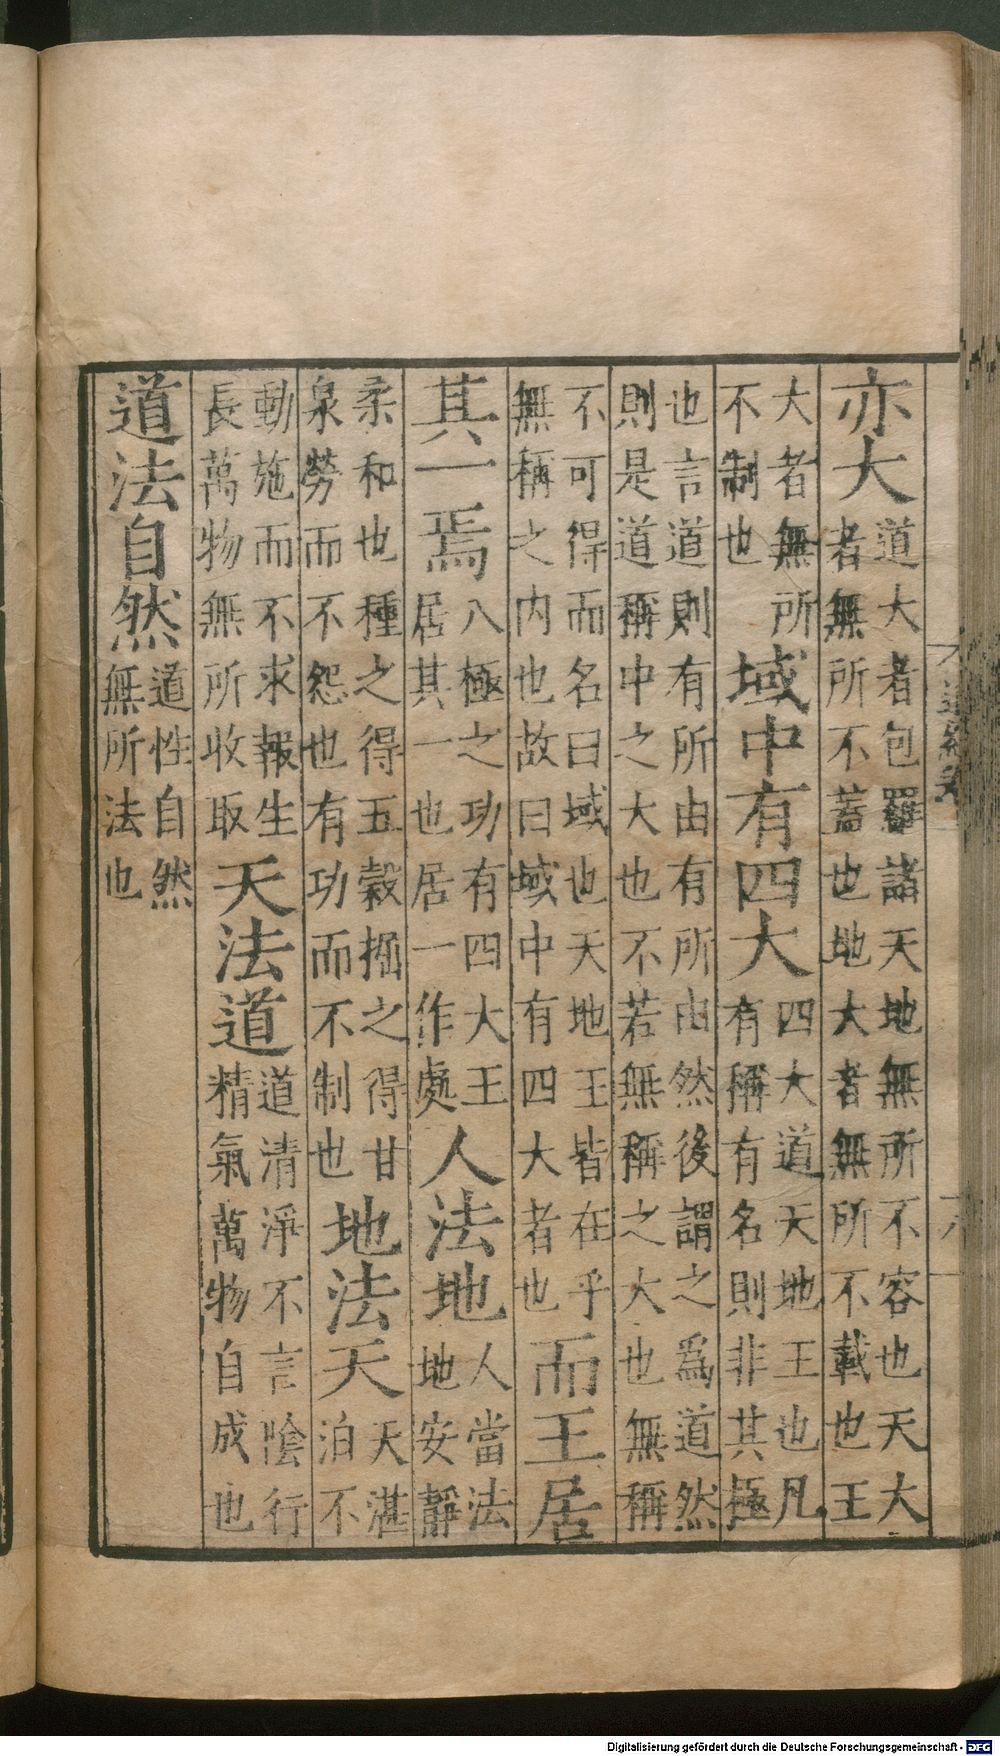 亦大道大者包羅諸天地無所不容也天大者無所不蓋也地大者無所不載也王
大者無所不制也域中有四大四大道天地王也凡有稱有名則非其極
也言道則有所由有所由然後謂之爲道然則是道稱中之大也不若無稱之大也無稱
不可得而名曰域也天地王皆在乎無稱之内也故曰域中有四大者也而王居
其一焉八極之功有四大王居其一也居一作處人法地人當法地安靜
柔和也種之得五穀掘之得甘泉勞而不怨也有功而不制也地法天天湛泊不
動施而不求報生長萬物無所收取天法道道清淨不言陰行精氣萬物自成也
道法自然道性自然無所法也
Digitalisierung gefördert durch die Deutsche Forschungsgemeinschaft - DFG